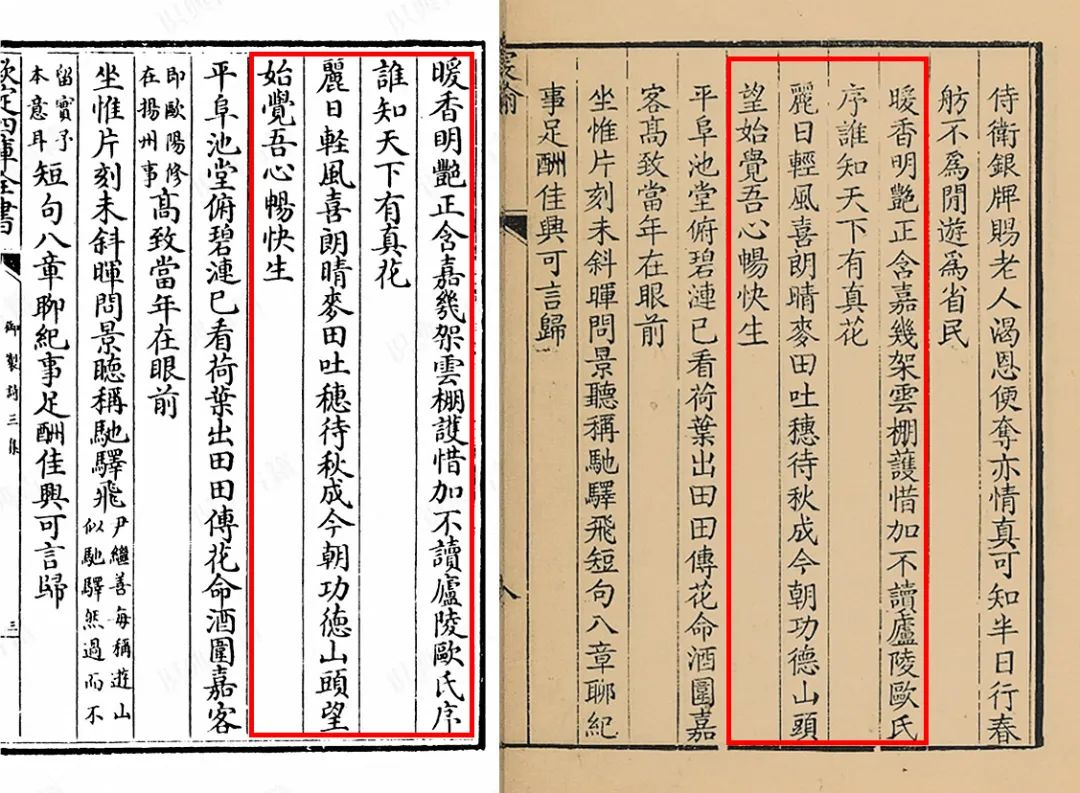 暖香明艷正含嘉幾架雲棚護惜加不讀廬陵歐氏序
誰知天下有真花
麗日軽風喜朗晴麥田吐穗待秋成今朝功德山頭望
始覺吾心暢快生
平阜池堂俯碧漣已看荷葉出田田傳花命酒圍嘉客
即歐陽修
在揚州事
高致當年在眼前
坐惟片刻未斜暉問景聽稱馳驛飛
尹繼善每稱遊山
似馳驛然過而不
留實予
本意耳
短句八章聊紀事足酬佳興可言歸
欽定四庫全書
御製詩三集
三
侍衛銀牌賜老人渴恩便奪亦情真可知半日行春
舫不爲閒遊爲省民
暖香明艷正含嘉幾架雲棚護惜加不讀廬陵歐氏
序誰知天下有真花
麗日輕風喜朗晴麥田吐穗待秋成今朝功德山頭
望始覺吾心暢快生
平阜池堂俯碧漣已看荷葉出田田傳花命酒圍嘉
客高致當年在眼前
坐惟片刻未斜暉問景聽稱馳驛飛短句八章聊紀
事足酬佳興可言歸